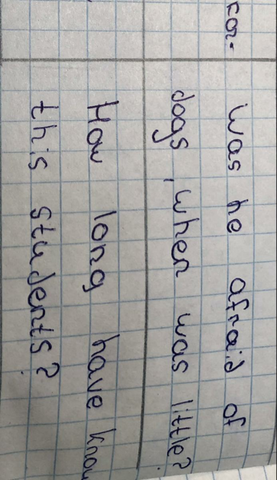 cor-
was he afraid of
dogs, when was little?
How long have know
this students?